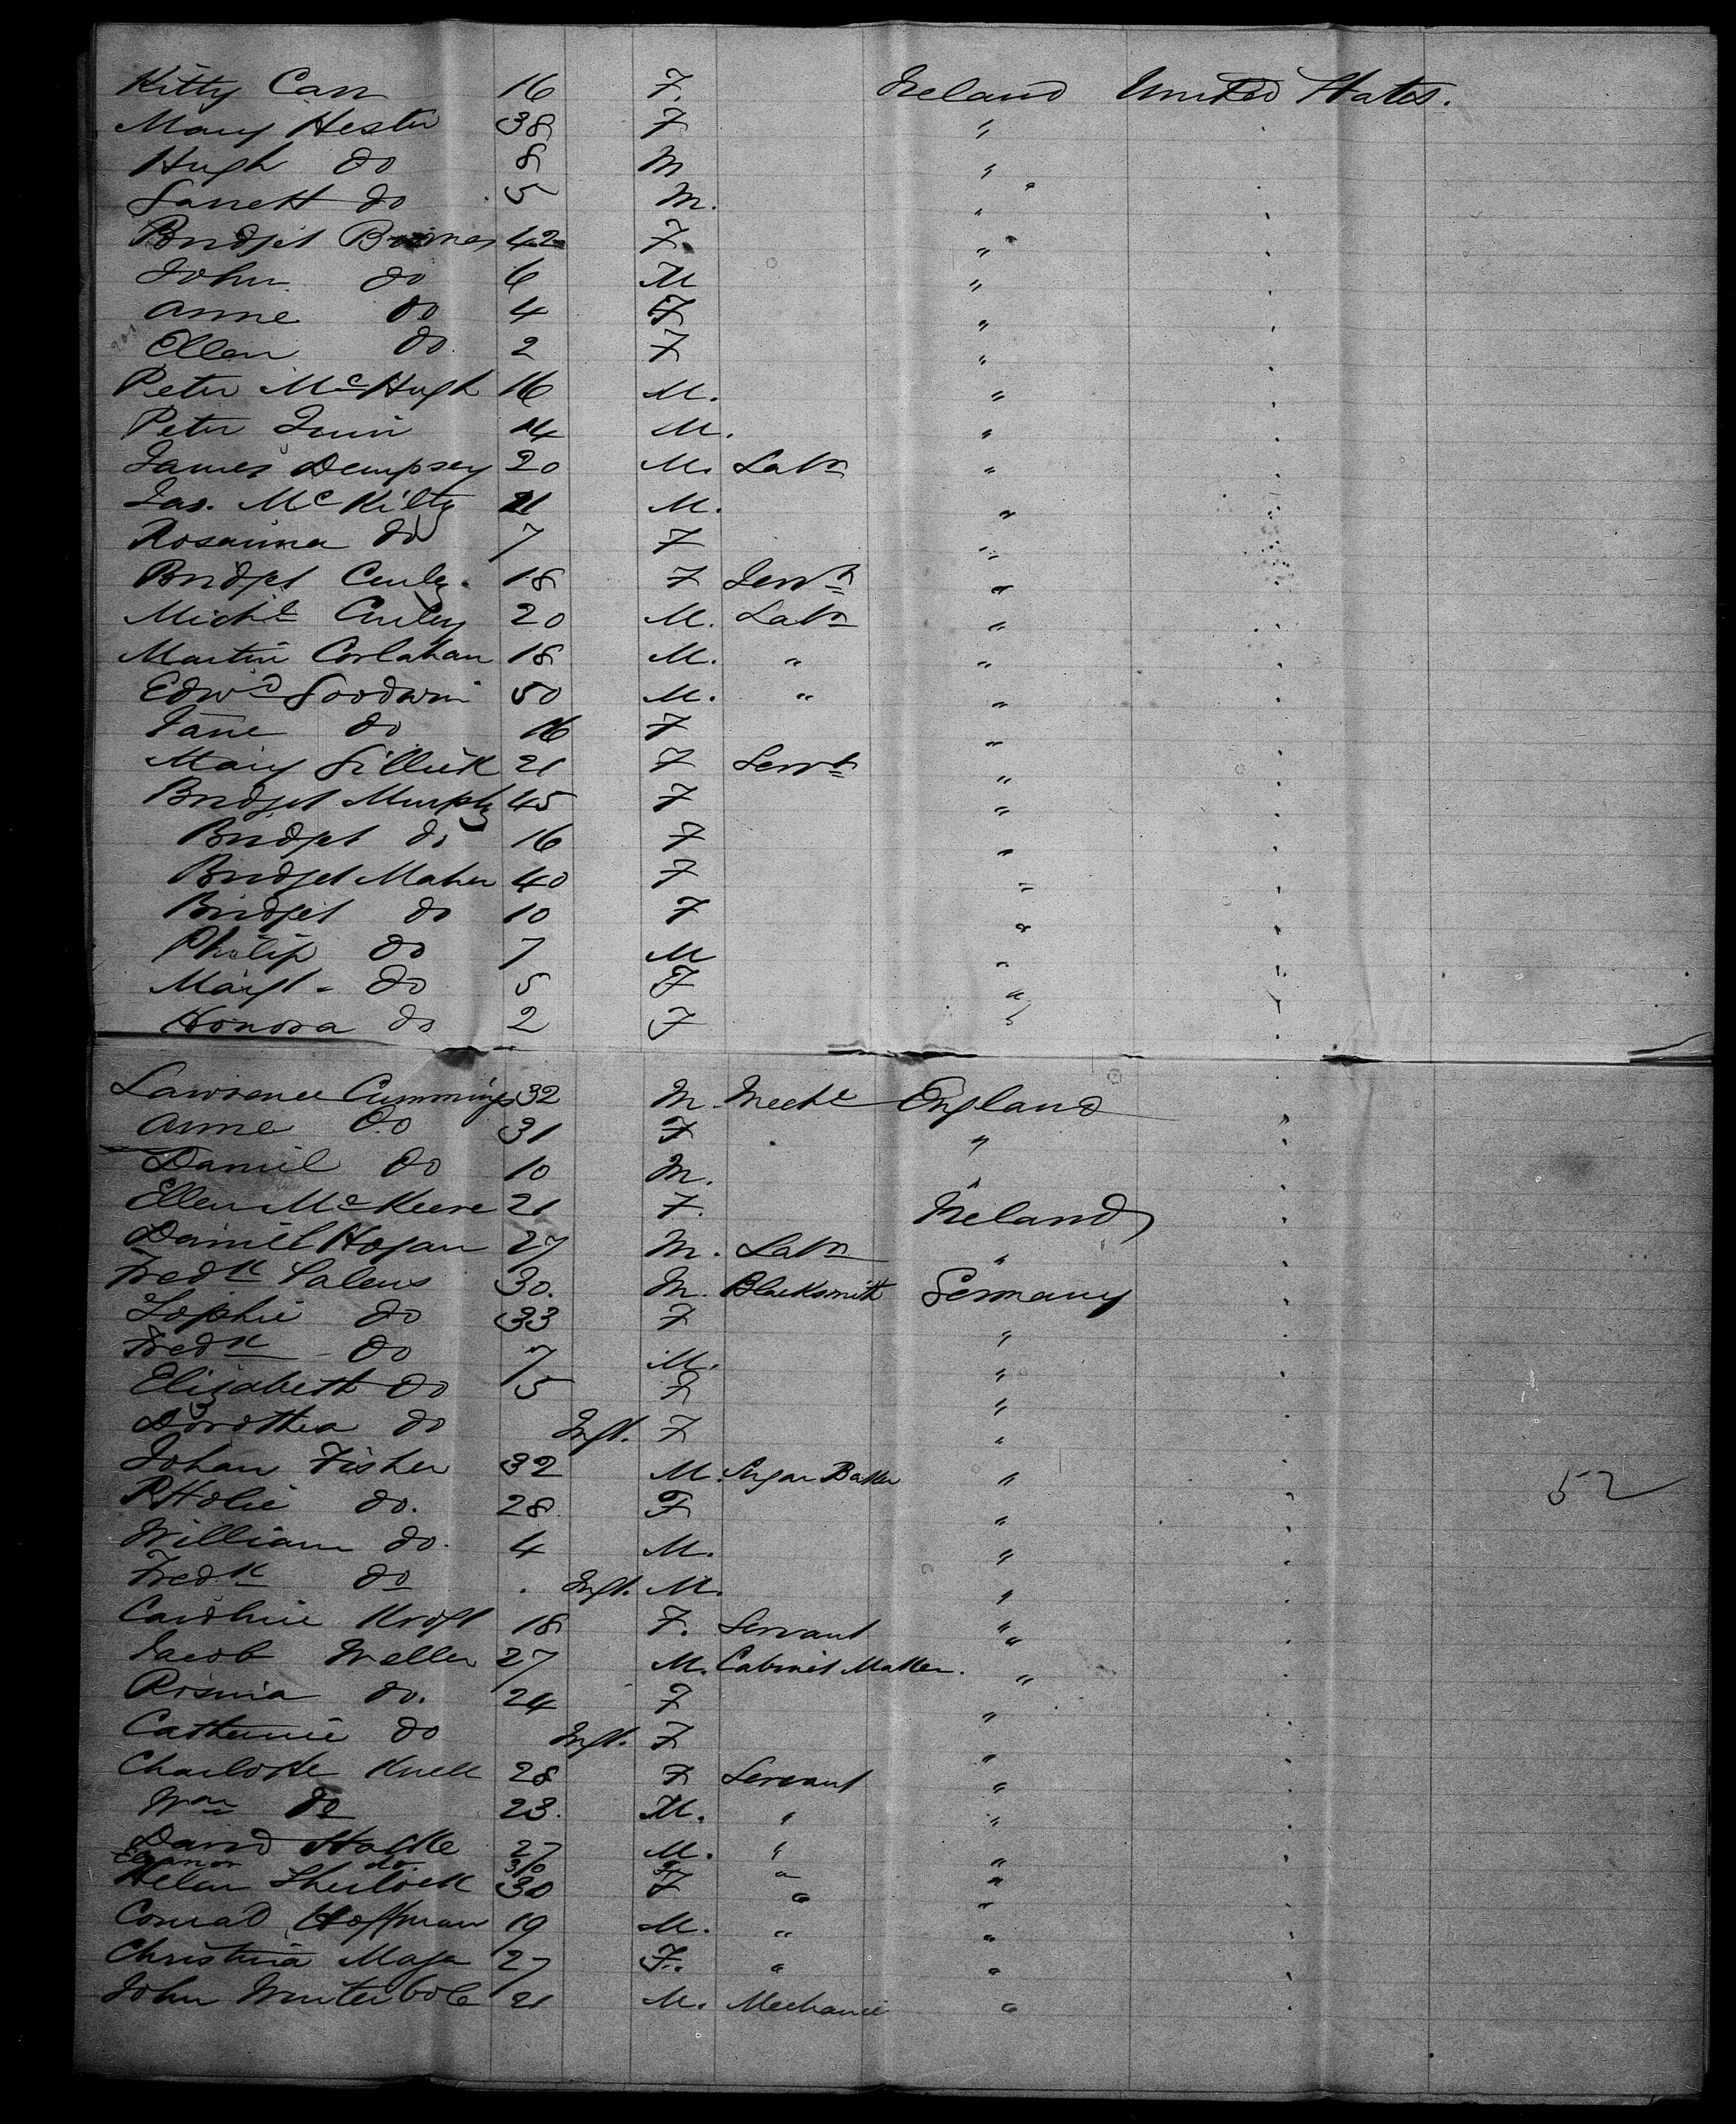 Kitty Carr 16 F. Ireland United States.
Mary Hester 38 F "
Hugh do 8 M "
Garrett do 5 M. "
Bridget 42 F "
John do 6 M "
Anne do 4 F "
Ellen do 2 F "
Peter McHugh 16 M. "
Peter 14 M. "
James Dempsey 20 M. Labr "
Jas. McKilty 21 M. "
Rosanna do 7 F "
Bridget Curley 18 F Servt "
Michl Curley 20 M. Labr "
Martin Corlahan 18 M. " "
Edwd Goodwin 50 M. " "
Jane do 16 F "
Mary Gillick 21 F Servt "
Bridget Murphy 45 F "
Bridget do 16 F "
Bridget Maher 40 F "
Bridget do 10 F "
Philip do 7 M "
Margt. do 5 F "
Honora do 2 F "
Lawrence Cummings 32 M. Mechc England "
Anne do 31 F "
Daniel do 10 M. "
Ellen McKeere 21 F. Ireland
Daniel Hogan 27 M. Labr "
Fredk Salens 30. M. Blacksmith Germany
Sophie do 33 F "
Fredk do 7 M. "
Elizabeth do 5 F "
Dorothea do Inft. F "
Johan Fisher 32 M. Sugar Baker "
do. 28 F " 52
William do. 4 M. "
Fredk do Inft. M. "
Caroline Kroft 18 F. Servant "
Jacob Weller 27 M. Cabinet Maker. "
Rosina do. 24 F "
Catherine do Inft. F "
Charlotte Knell 28 F Servant "
Wm do 23. M. " "
David 27 M. " "
Eleanor do 30 F " "
Helen Sherlock 30 F " "
Conrad Hoffman 19 M. " "
Christina Maja 27 F. " "
John Winterbole 21 M. Mechanic "